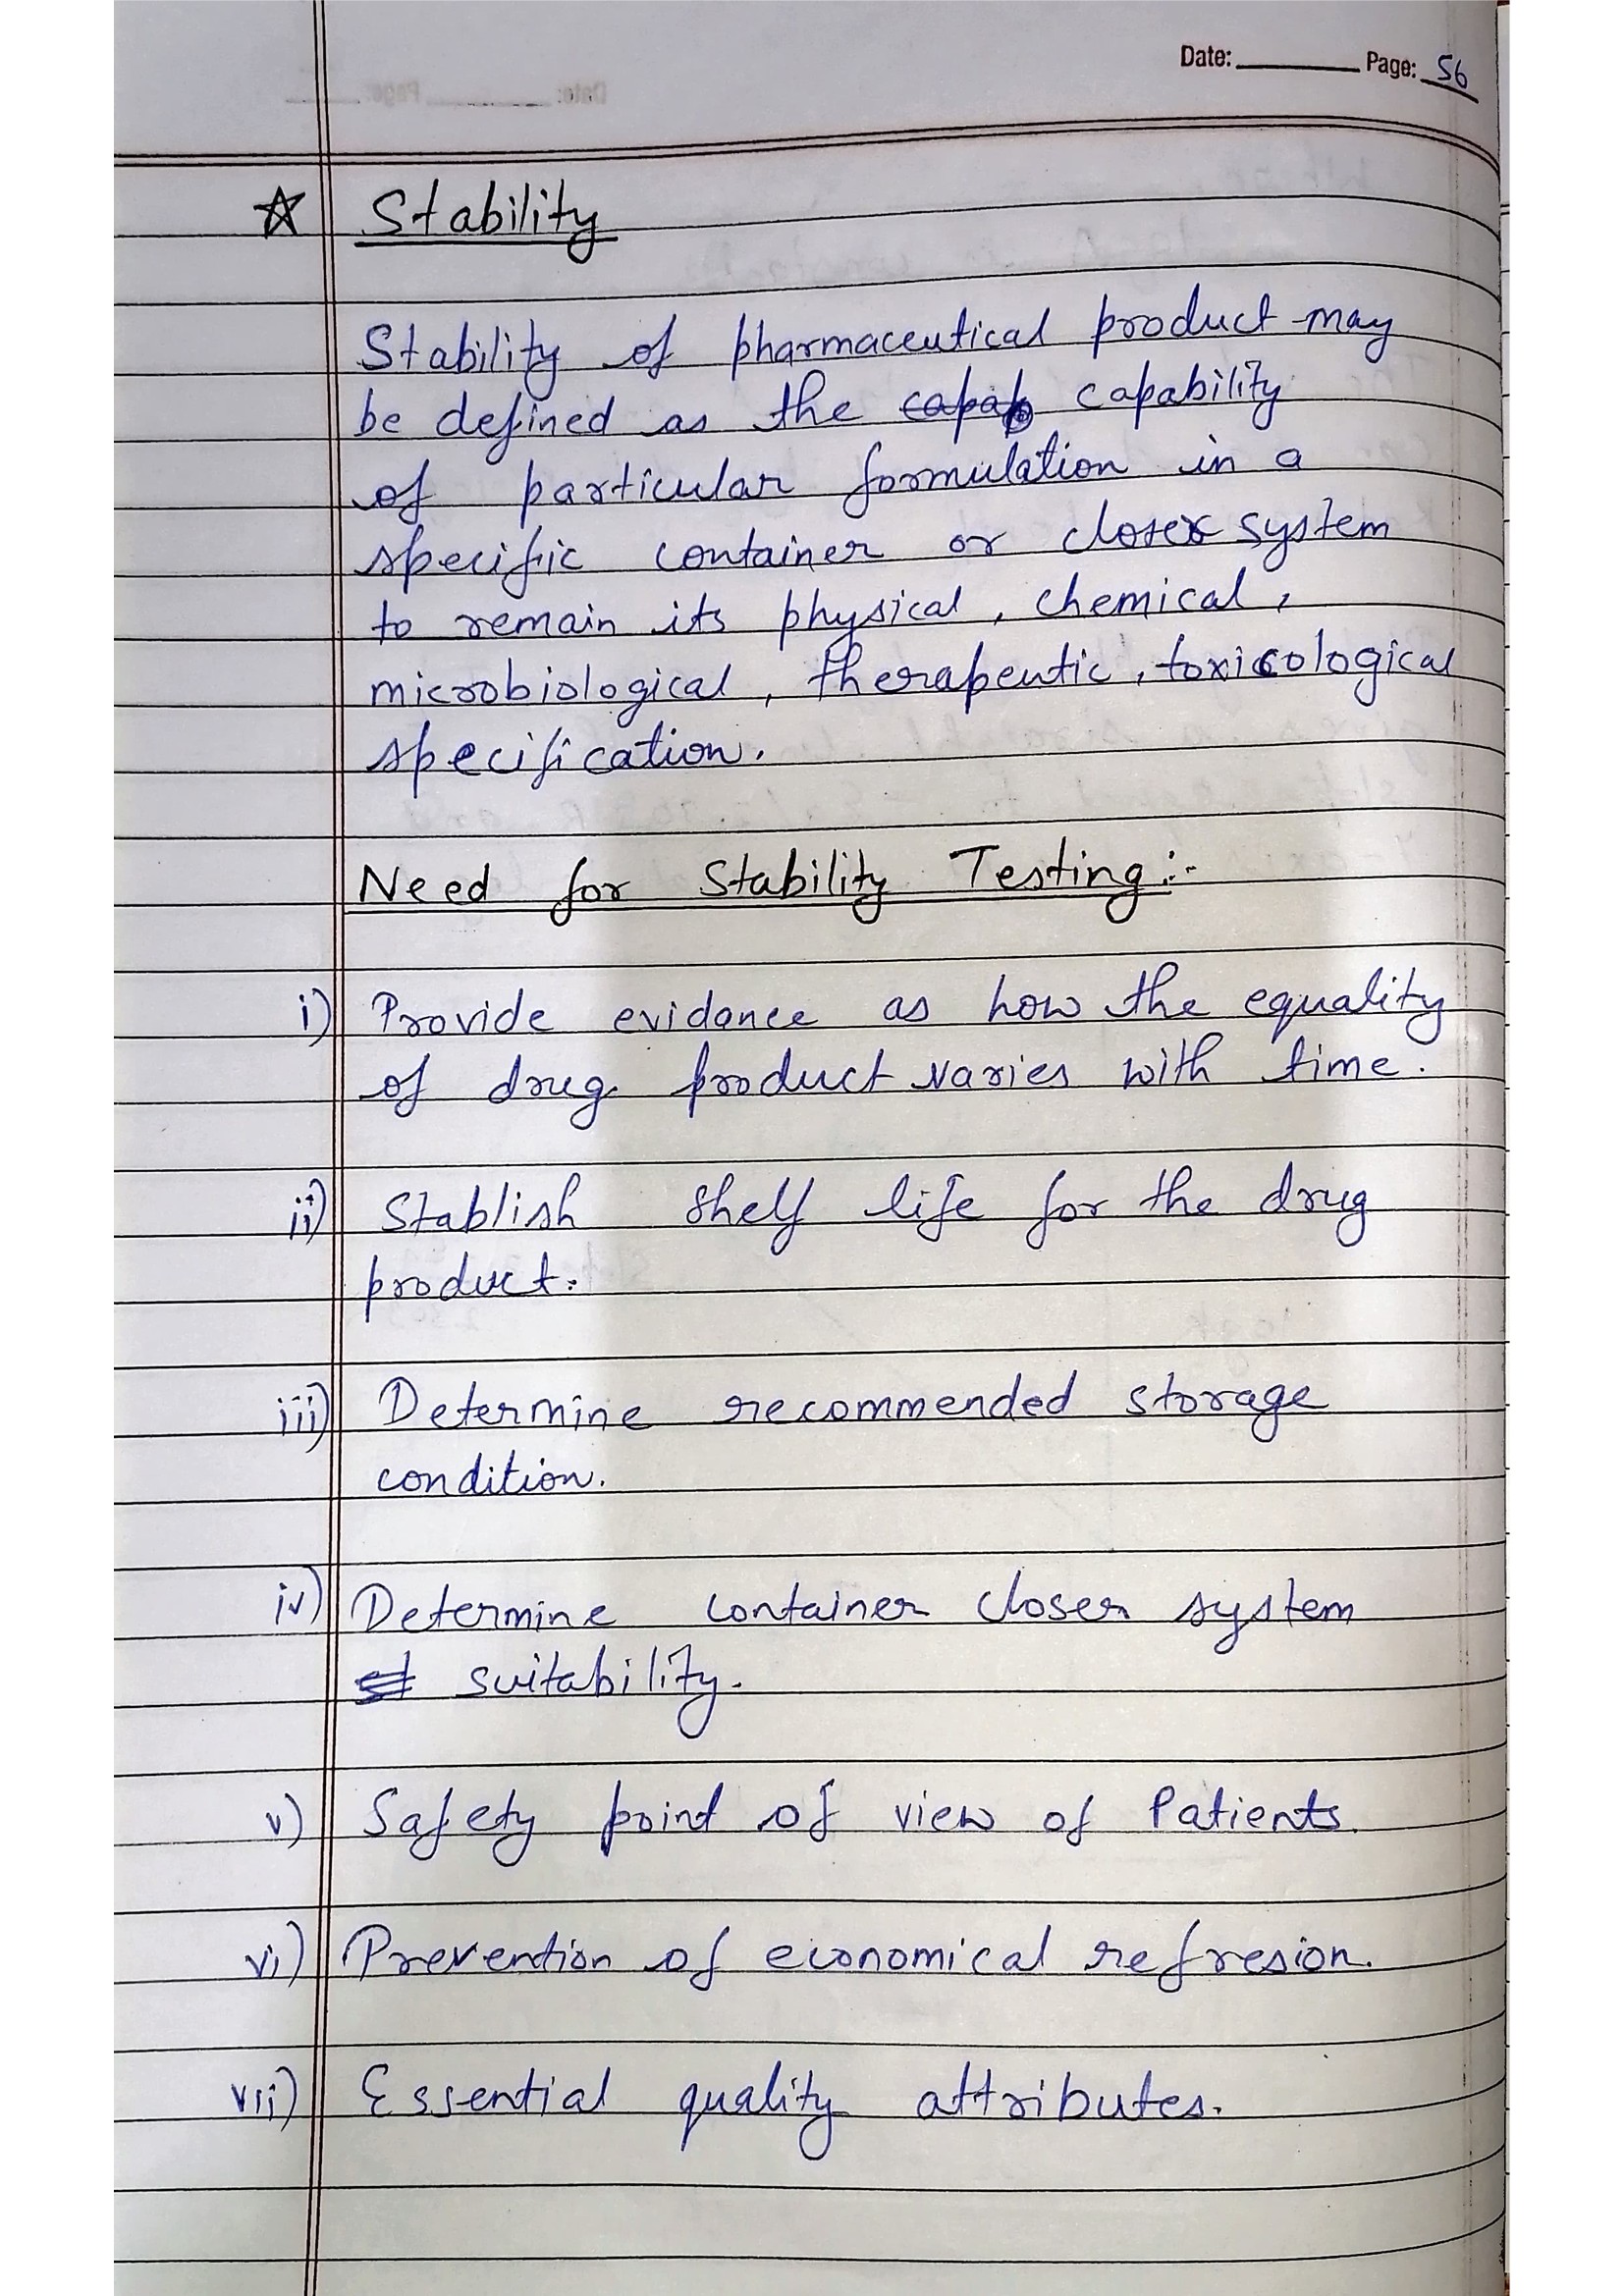 Date: Page: 56
☆ Stability
Stability of pharmaceutical product may
be defined as the capab capability
of particular formulation in a
specific container or closer system
to remain its physical, chemical,
microbiological, therapeutic, toxicological
specification.
Need for Stability Testing:-
i) Provide evidance as how the equality
of drug product varies with time.
ii) Stablish shelf life for the drug
product.
iii) Determine recommended storage
condition.
iv) Determine container closer system
st suitability.
v) Safety point of view of Patients.
vi) Prevention of economical refresion.
vii) Essential quality attributes.